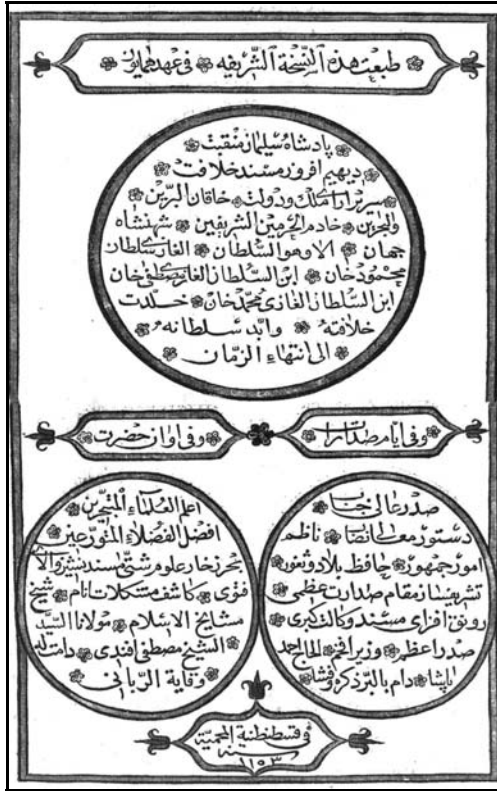 طبعت هذه النسخة الشريفه في عهد همايون
پادشاه سليمان منقبت
ديهيم افروز مسند خلافت
سرير اراى ملك ودولت خاقان البرين
والبحرين خادم الحرمين الشريفين شهنشاه
جهان الا وهو السلطان الغازى سلطان
محمود خان ابن السلطان الغازى مصطفى خان
ابن السلطان الغازى محمد خان خلدت
خلافته وابد سلطانه
الى انتهاء الزمان
وفى ايام صدارت
وفى اوان حضرت
صدر عالى جناب
دستور معالى نصاب ناظم
امور جمهور حافظ بلاد وثغور
تشريفساز مقام صدارت عظمى
رونق افزاى مسند وكالت كبرى
صدر اعظم وزير افخم الحاج احمد
پاشا دام بالبر ذكره وفشا
اعلم العلماء المتبحرين
افضل الفضلاء المتورعين
بحر زخار علوم شتى مسند نشين والاى
فتوى كاشف مشكلات انام شيخ
مشايخ الاسلام مولانا السيد
الشيخ مصطفى افندى دامت له
وقاية الربانى
فى قسطنطنية المحمية
سنه
١١٥٣